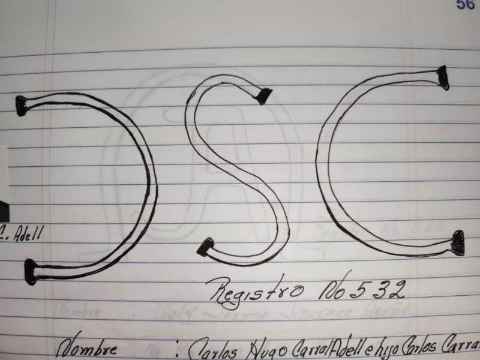 56
ↃSC
C. Adell
Registro No 532
Nombre : Carlos Hugo Carral Adell e hijo Carlos Carra